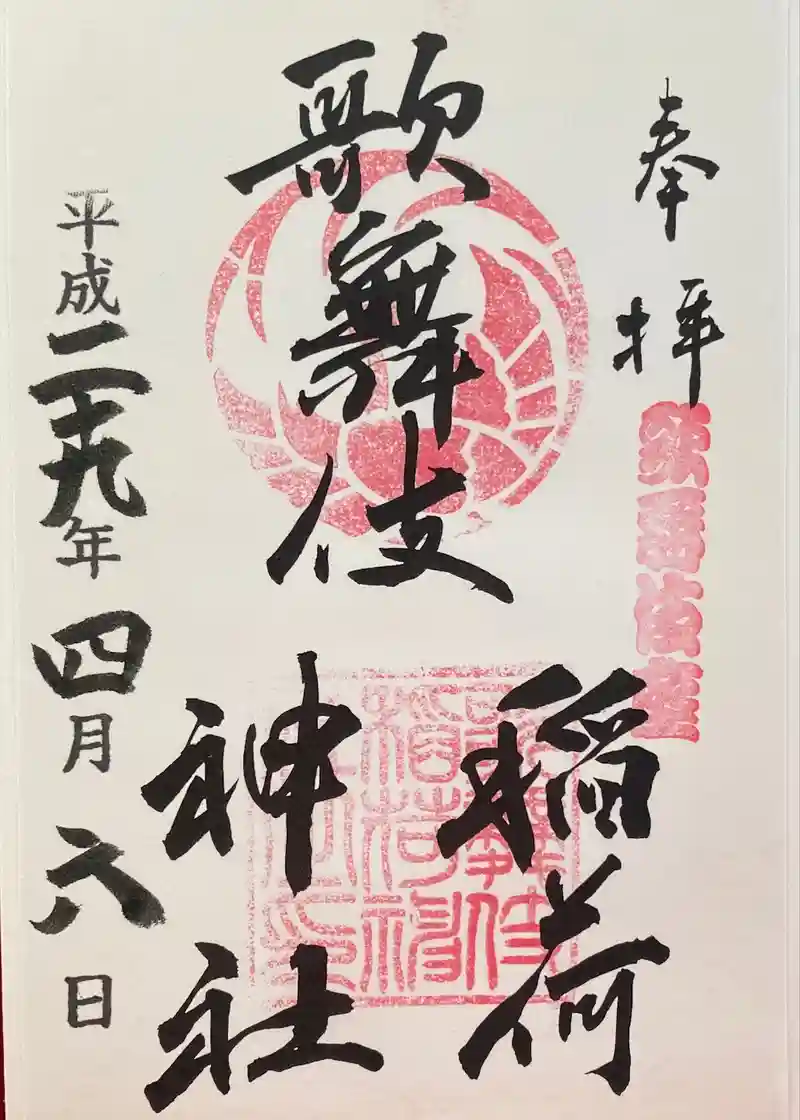 奉拝
歌舞伎座
歌舞伎
稲荷
神社
平成二十九年四月六日